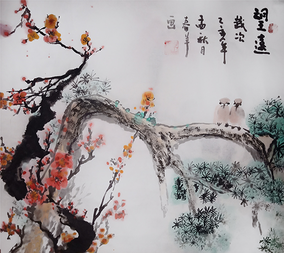 望遠
歲次
乙亥年
孟秋月
画